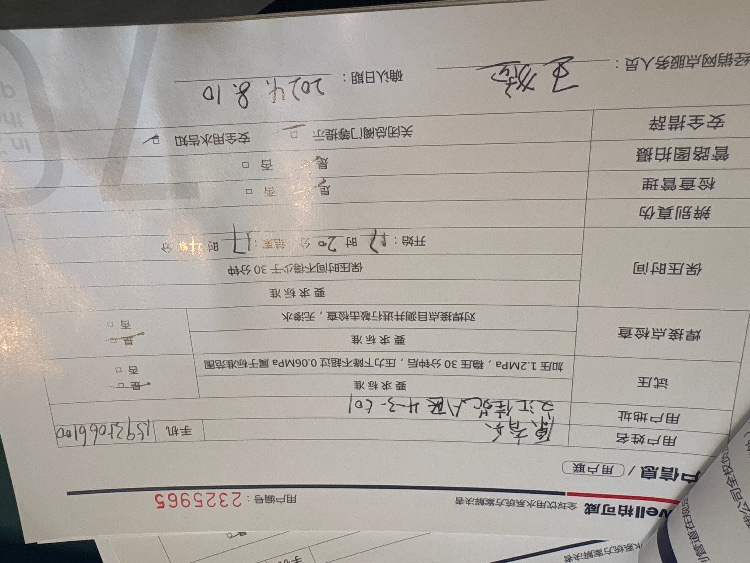 well柏可威 全球饮用水系统方案解决者 用户编号：2325965
户信息 / 用户联
用户姓名 手机
用户地址 4-3-601
试压 要求标准 是
加压1.2MPa，稳压 30 分钟后，压力下降不超过0.06MPa 属于标准范围 否
焊接点检查 要求标准 是
对焊接点目测并进行敲击检查，无渗水 否
保压时间 要求标准
保压时间不得少于 30 分钟
开始：17 时 20 分 结束：17 时 分
辨别真伪
检查管理 是 否
管路图拍摄 是 否
安全措辞 关闭总阀门等提示 安全用水告知
经销网点服务人员： 确认日期：2024.8.10